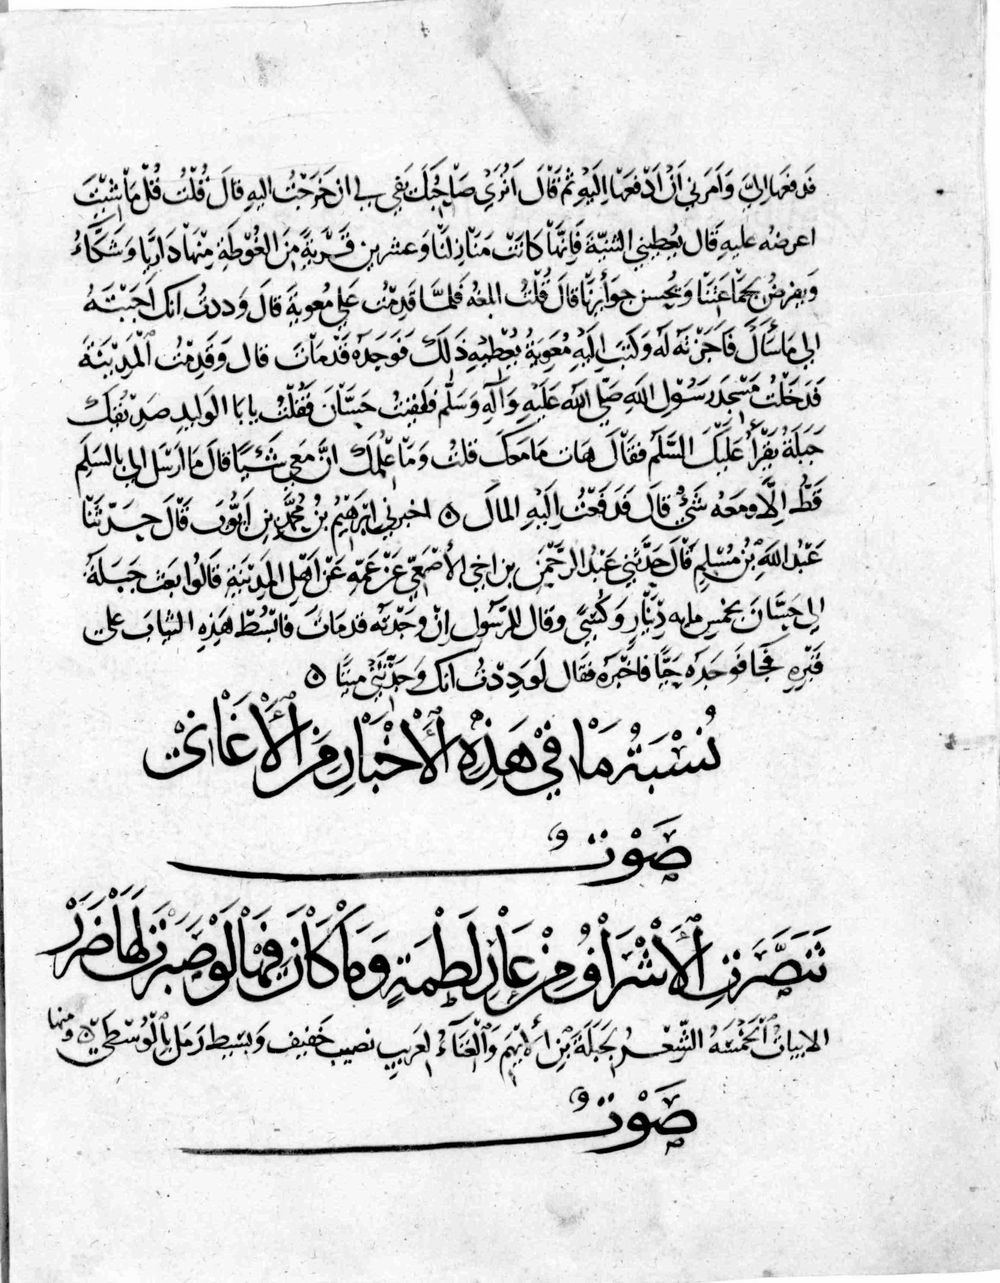 فدفعها الىّ وَامَرني اَنْ ادْفعهَا اِليَهِ ثم قَالَ اتُرَىْ صَاحِبَكَ يَفى لى ان خَرَجْتُ اليهِ قالَ قُلْتُ قُلْ مَاشِئْتَ
اعرضه عليهِ قال يُعطِينى الثنيّة فَاِنّها كانَتْ مَنازِلنَا وَعشرين قَرْيةً مِنَ الغُوْطَةِ مِنْهَا دَاريّا وَسَكّاءُ
وَيفرضُ لجمَاعَتنَا وَيُحسِن جوَأيزنَا قالَ قُلْتُ ابلغهُ فلمّا قَدِمْتُ عَلى مُعويةَ قالَ وَددتُ انك اجَبْتَهُ
الى مَا سَأَلَ فَاجَزْتهُ لهُ وَكتبَ اِليَهِ مُعَوِيةُ يُعْطِيهِ ذلكَ فَوَجَدَهُ قَدْ مَاتَ قال وَقَدِمْتُ الْمَدِيْنَةَ
فَدَخَلْتُ مَسْجِدَ رَسُوْلِ اللهِ صَلّى الله عَلَيْهِ وَآلِهِ وَسَلّم فلقِيْتُ حَسَّانَ فقُلْتُ يابَا الوَليدِ صَدِيْقُكَ
جَبَلةُ يَقْرَأُ عَلَيْكَ السَّلَمَ فقَالَ هَات مَا معَكَ قلتُ وَمَا عِلْمُكَ انَّ مَعِى شَيْئًا قالَ مَا اَرْسَلَ الىَّ بالسَلِمَ
قَطُّ اِلَّا وَمعَهُ شَىْءٌ قالَ فَدَفَعْتُ اِليَهِ المالَ ۞ اخبرني ابْرَهِيْمُ بنُ مُحَمَّدِ بنِ ايّوُبَ قَالَ حَدّثَنَا
عَبْدُ اللهِ بْنُ مُسْلِمٍ قَالَ حَدَّثَنِى عَبْدُ الرَّحْمَنِ بن اخى الأصْمَعِىّ عَنْ عَمِّهِ عَنْ اَهْلِ المَدِيْنَةِ قَالُوا بَعَثَ جَبَلَةُ
الى حَسَّانَ بخمسِ مايه دِيْنَارٍ وَكُسًى وقال للرَّسُولِ انْ وَجَدْتَه قد مَاتَ فابْسُطْ هَذِهِ الثيابَ على
قَبْرِهِ فجَا فوجَدَهُ حَيّاً فاخْبَرَهُ فقال لَوَدِدْتُ انكَ وَجَدْتَنِى مَيتًا ۞
نُسْبَةُ مَا فِيْ هَذِهِ الْأَخْبَارِ مِنَ الْأَغَانِيْ
صَوْتٌ
تَنَصَّرَتِ الْأَشْرَافُ مِنْ عَارِ لَطْمَةٍ وَمَا كَانَ فِيهَا لَوْ صَبَرْتُ لَهَا ضَرَرْ
الابيات الخمْسَة الشِّعْرُ لجَبَلَةَ بْنِ الأيْهَمِ وَالْغَنَاءُ لعَرِيبِ نصيبُ خَفِيفٍ وَبَسِيطِ رَمَلٍ بِالْوُسْطَى ۞ وَمنها
صَوْتٌ